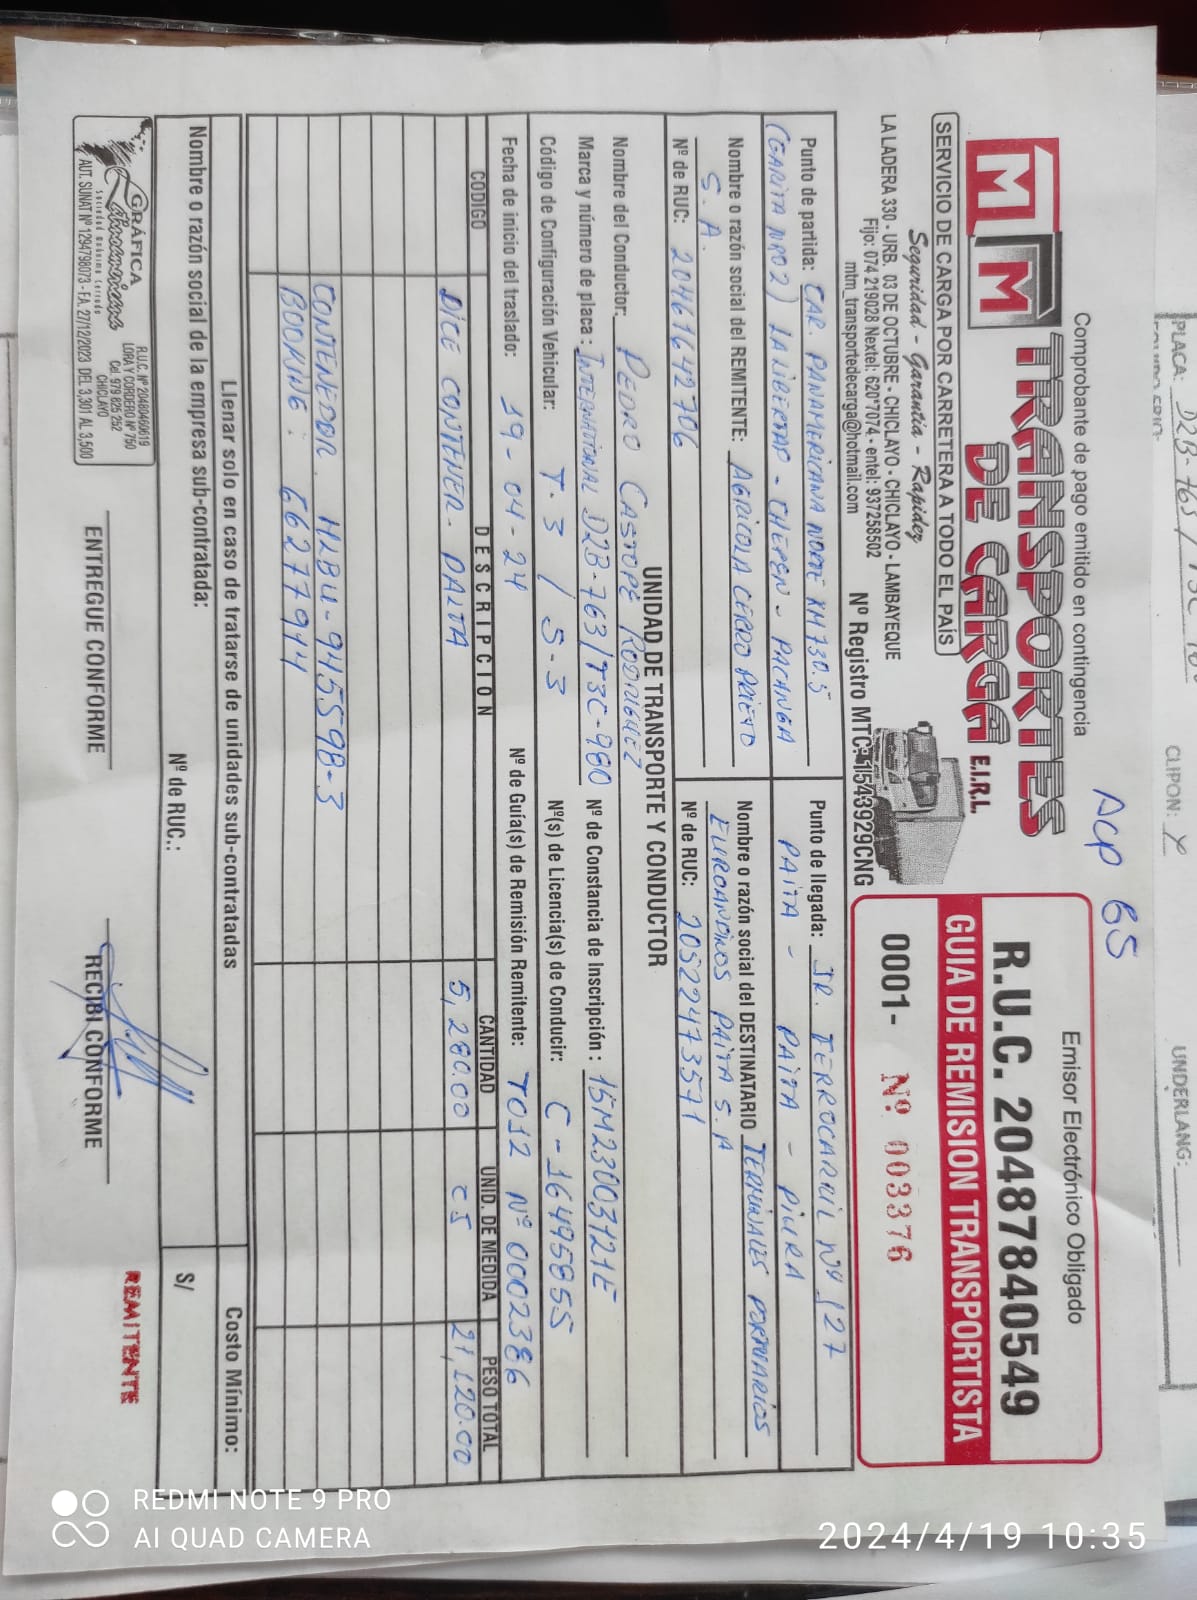 PLACA: D2B-763 /
CLIPON:
UNDERLANG:
ACP 65
Comprobante de pago emitido en contingencia
MTM TRANSPORTES
DE CARGA E.I.R.L.
SERVICIO DE CARGA POR CARRETERA A TODO EL PAÍS
Seguridad - Garantía - Rapidez
LA LADERA 330 - URB. 03 DE OCTUBRE - CHICLAYO - CHICLAYO - LAMBAYEQUE
Fijo: 074 219028 Nextel: 620*7074 - entel: 937258502
mtm_transportedecarga@hotmail.com
Nº Registro MTC: 1543929CNG
Emisor Electrónico Obligado
R.U.C. 20487840549
GUIA DE REMISION TRANSPORTISTA
0001- Nº 003376
Punto de partida: CAR. PANAMERICANA NORTE KM 730.5
(GARITA NRO2) LA LIBERTAD - CHEPEN - PACANGA
Punto de llegada: JR. FERROCARRIL Nº 127
PAITA - PAITA - PIURA
Nombre o razón social del REMITENTE: AGRICOLA CERRO PRIETO
S.A.
Nº de RUC: 20461642706
Nombre o razón social del DESTINATARIO TERMINALES PORTUARIOS
EUROANDINOS PAITA S.A
Nº de RUC: 20522473571
UNIDAD DE TRANSPORTE Y CONDUCTOR
Nombre del Conductor: PEDRO CASTOPE RODRIGUEZ
Marca y número de placa: INTERNATIONAL D2B-763/T3C-980 Nº de Constancia de Inscripción: 15M23003121E
Código de Configuración Vehicular: T-3 / S-3 Nº(s) de Licencia(s) de Conducir: C-16495855
Fecha de inicio del traslado: 19-04-24 Nº de Guía(s) de Remisión Remitente: T012 Nº 0002386
CÓDIGO DESCRIPCIÓN CANTIDAD UNID. DE MEDIDA PESO TOTAL
DICE CONTENER. PALTA 5,280.00 CS 21,120.00
CONTENEDOR. HLBU-945598-3
BOOKING: 66277944
Llenar solo en caso de tratarse de unidades sub-contratadas
Costo Mínimo:
Nombre o razón social de la empresa sub-contratada:
Nº de RUC.:
S/
GRÁFICA
Sociedad Anónima Cerrada
R.U.C. Nº 20480460619
LORA Y CORDERO Nº 750
Cel 979 825 252
CHICLAYO
AUT. SUNAT Nº 1294798073 - FA. 27/12/2023 DEL 3,301 AL 3,500
ENTREGUE CONFORME
RECIBI CONFORME
REMITENTE
REDMI NOTE 9 PRO
AI QUAD CAMERA
2024/4/19 10:35